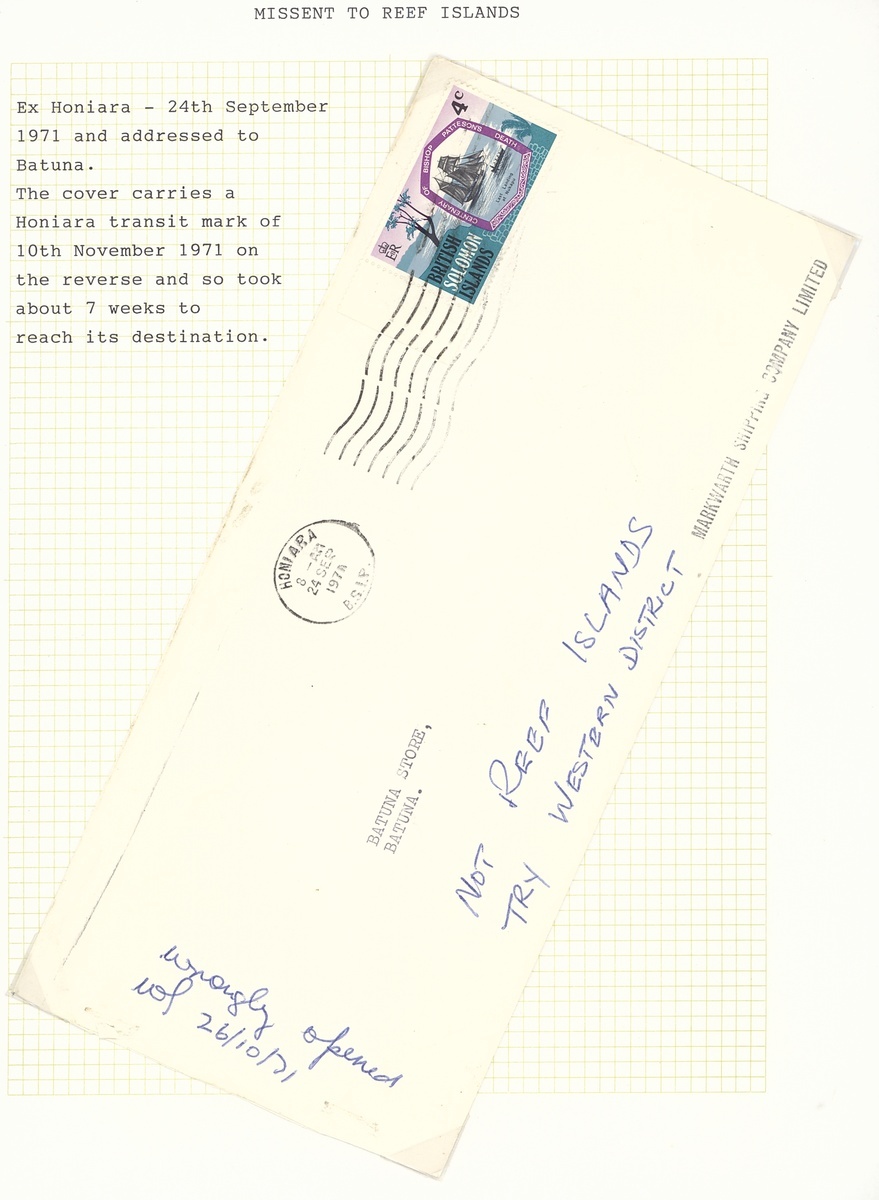 MISSENT TO REEF ISLANDS
Ex Honiara - 24th September
1971 and addressed to
Batuna.
The cover carries a
Honiara transit mark of
10th November 1971 on
the reverse and so took
about 7 weeks to
reach its destination.
4c
CENTENARY OF BISHOP PATTESON'S DEATH
Last Landing
at Nukapu
ER
BRITISH
SOLOMON
ISLANDS
MARKWARTH SHIPPING COMPANY LIMITED
HONIARA
8 -AM
24 SEP
1971
B.S.I.P.
BATUNA STORE,
BATUNA.
NOT REEF ISLANDS
TRY WESTERN DISTRICT
wrongly opened
26/10/71